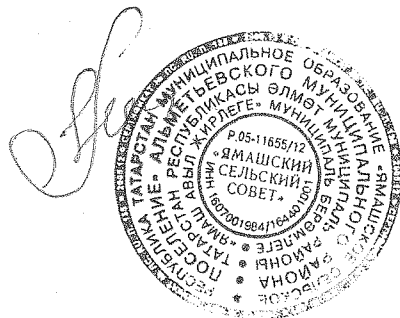 РЕСПУБЛИКА ТАТАРСТАН МУНИЦИПАЛЬНОЕ ОБРАЗОВАНИЕ «ЯМАШСКОЕ СЕЛЬСКОЕ
ПОСЕЛЕНИЕ» АЛЬМЕТЬЕВСКОГО МУНИЦИПАЛЬНОГО РАЙОНА
ТАТАРСТАН РЕСПУБЛИКАСЫ ӘЛМӘТ МУНИЦИПАЛЬ РАЙОНЫ
«ЯМАШ АВЫЛ ЖИРЛЕГЕ» МУНИЦИПАЛЬ БЕРӘМЛЕГЕ
Р.05-11655/12
«ЯМАШСКИЙ
СЕЛЬСКИЙ
СОВЕТ»
ИНН 1607001984/164401001